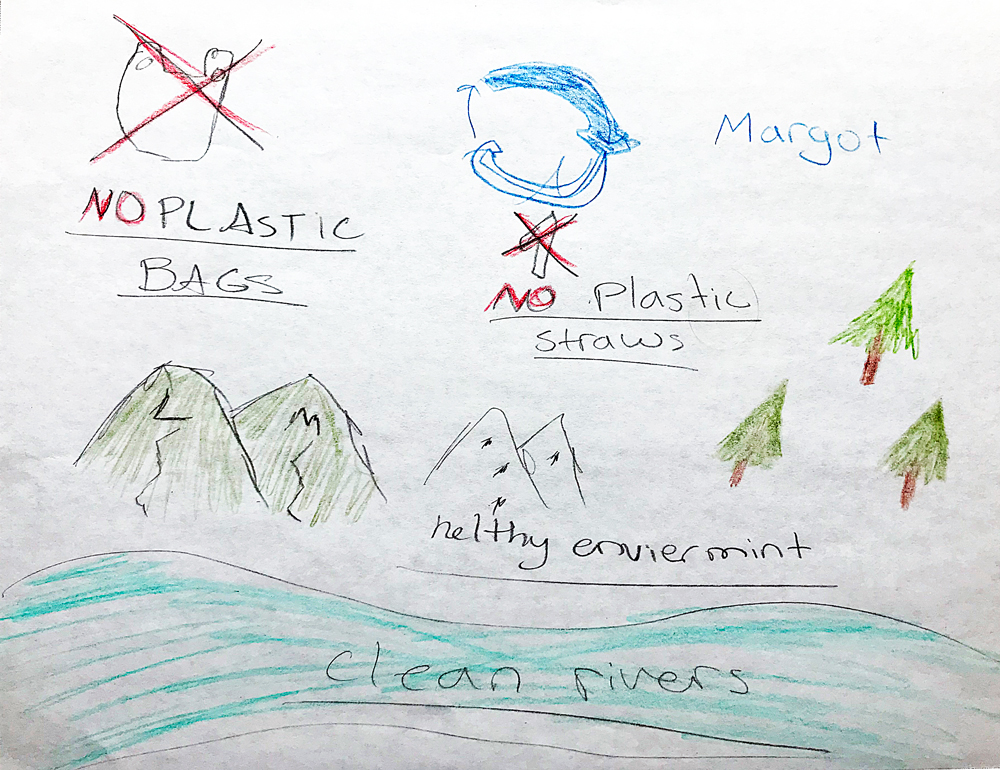 Margot
NO PLASTIC
BAGS
NO Plastic
straws
helthy enviermint
clean rivers